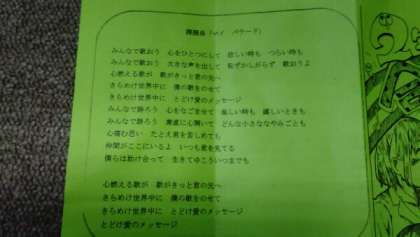 開幕曲「ハイ　バラード」
みんなで歌おう　心をひとつにして　悲しい時も　つらい時も
みんなで歌おう　大きな声を出して　恥ずかしがらず　歌おうよ
心燃える歌が　歌がきっと君の元へ
きらめけ世界中に　僕の歌をのせて
きらめけ世界中に　とどけ愛のメッセージ
みんなで語ろう　心をなごませて　楽しい時も　嬉しいときも
みんなで語ろう　素直に心開いて　どんな小さななやみごとも
心痛む思い　たとえ君を苦しめても
仲間がここにいるよ　いつも君を見てる
僕らは助け合って　生きてゆこういつまでも
心燃える歌が　歌がきっと君の元へ
きらめけ世界中に　僕の歌をのせて
きらめけ世界中に　とどけ愛のメッセージ
とどけ愛のメッセージ